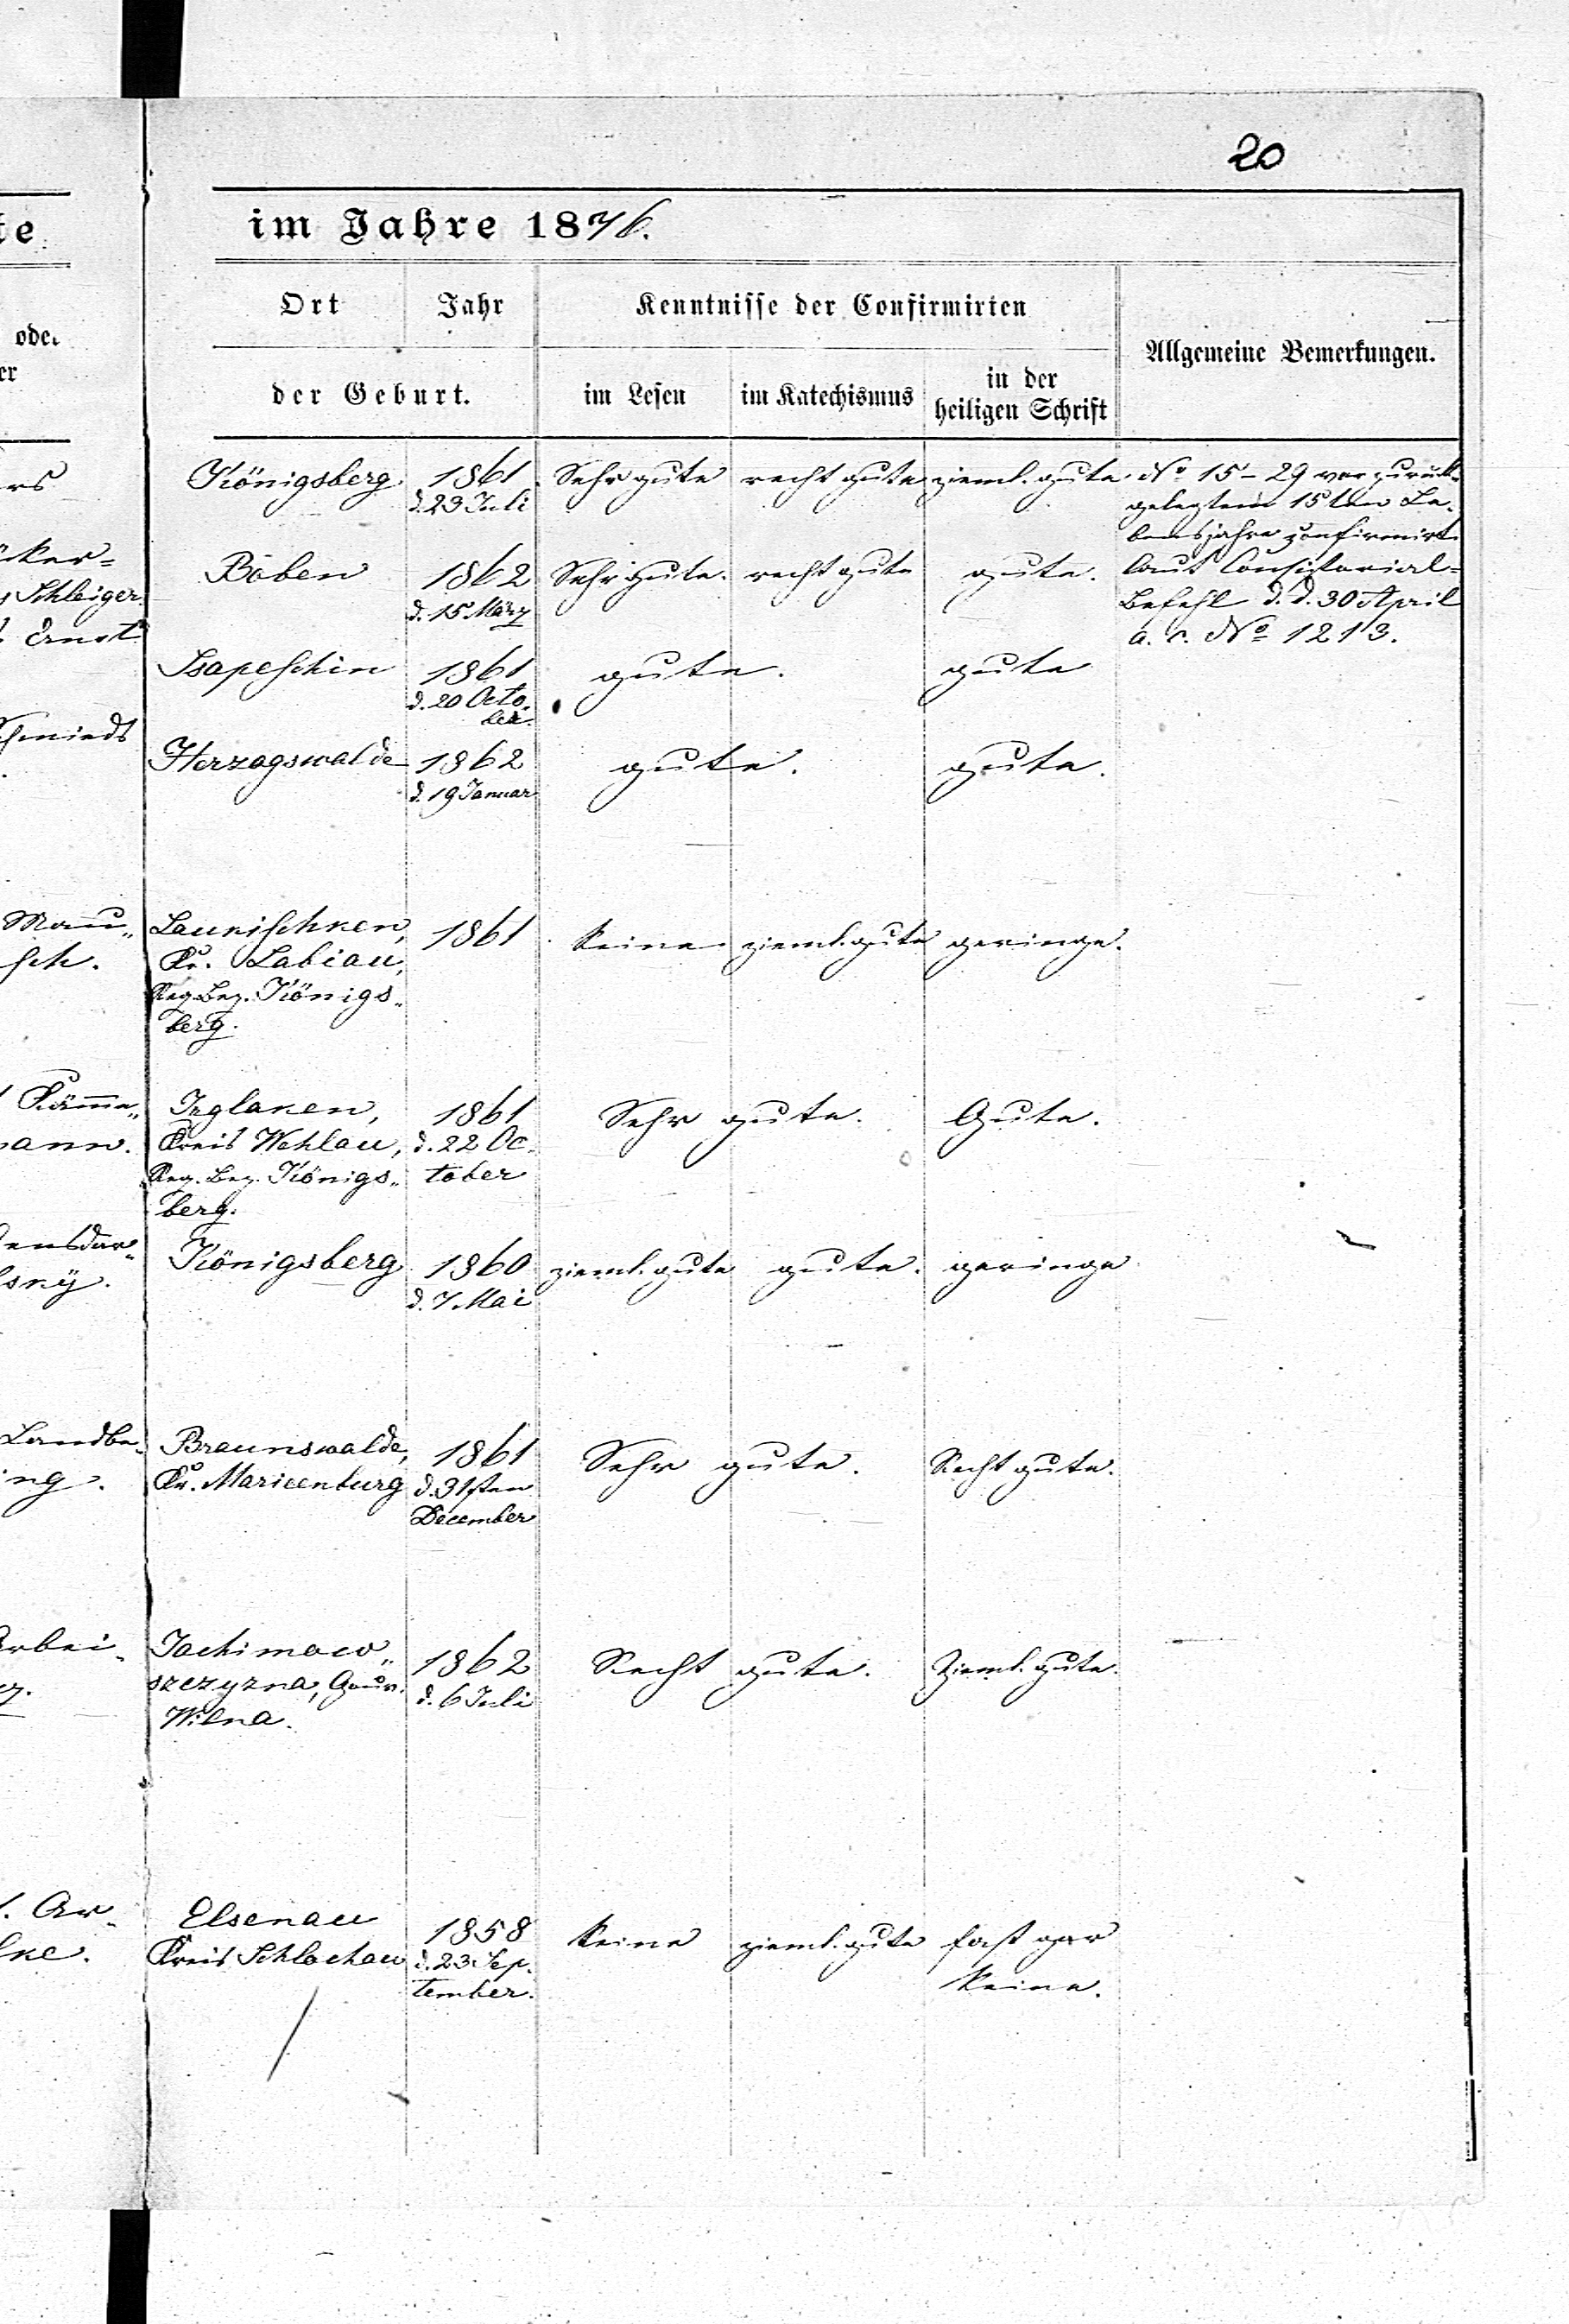 20
te
im Jahre 1876.
Ort
Jahr
Kenntnisse der Confirmirten
Allgemeine Bemerkungen.
ode.
er
der Geburt.
im Lesen
im Katechismus
in der
heiligen Schrift
ers
Königsberg
1861
d. 23 Juli
Sehr gute
recht gute
zieml. gute
No 15-29 vor zurück-
gelegtem 15ten Le-
bensjahre confirmirt
laut Consistorial-
Befehl d. d. 30 April
a. c. No 1213.
Schleiger
Ernst
Böben
1862
d. 15 März
Sehr gute.
recht gute
gute.
Isapeschin
1861
d. 20 Octo-
ber.
gute.
gute
schmieds
Herzogswalde
1862
d. 19 Januar
gute.
gute.
Mau„
sch.
Launischken,
Kr. Labiau,
Reg. Bez. Königs„
berg.
1861
Keine
zieml. gute
geringe.
Kämme„
mann.
Irglanen,
Kreis Wehlau,
Reg. Bez. Königs„
berg.
1861
d. 22 Oc-
tober
Sehr gute.
Gute.
sny.
Königsberg
1860
d. 7. Mai
zieml. gute
gute.
geringe
Landbe-
ing.
Braunswalde,
Kr. Marienburg
1861
d. 31sten
December
Sehr gute.
Recht gute.
Arbei-
Jachimow„
szczyzna, Gouv.
Wilna.
1862
d. 6 Juli
Recht gute.
Zieml. gute.
Ar-
lke.
Elsenau
Kreis Schlochau
1858
d. 23 Sep-
tember.
Keine
zieml. gute
fast gar
keine.